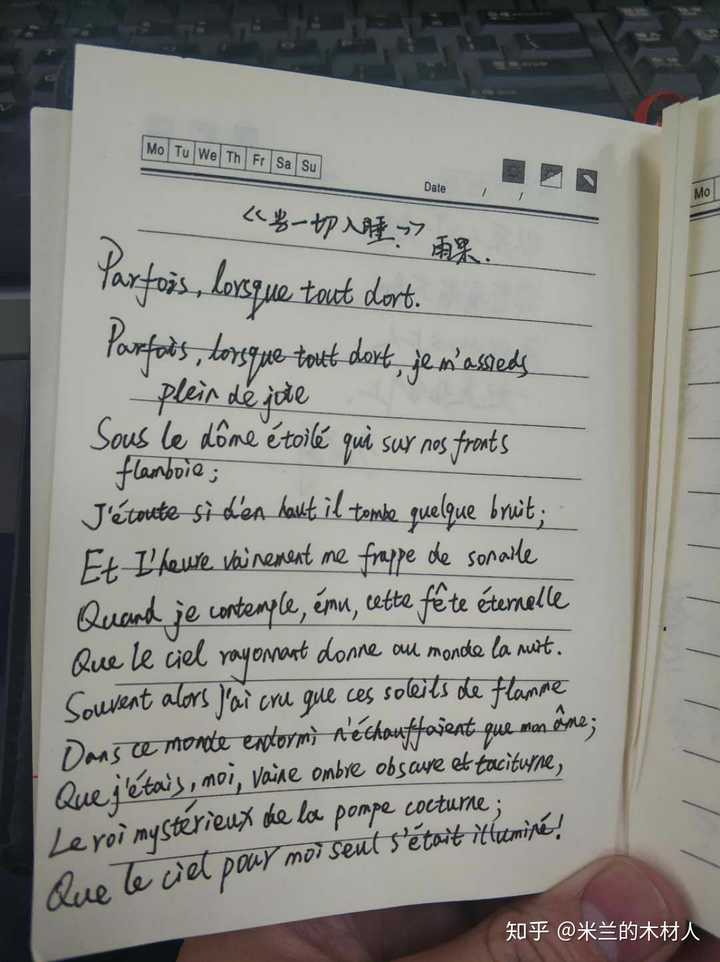 Mo Tu We Th Fr Sa Su
Date / /
Mo
《当一切入睡.》 雨果.
Parfois, lorsque tout dort.
Parfois, lorsque tout dort, je m'assieds
plein de joie
Sous le dôme étoilé qui sur nos fronts
flamboie;
J'écoute si d'en haut il tombe quelque bruit;
Et L'heure vainement me frappe de son aile
Quand je contemple, ému, cette fête éternelle
Que le ciel rayonnant donne au monde la nuit.
Souvent alors j'ai cru que ces soleils de flamme
Dans ce monde endormi n'échauffaient que mon âme;
Que j'étais, moi, vaine ombre obscure et taciturne,
Le roi mystérieux de la pompe cocturne;
Que le ciel pour moi seul s'était illuminé!
知乎 @米兰的木材人